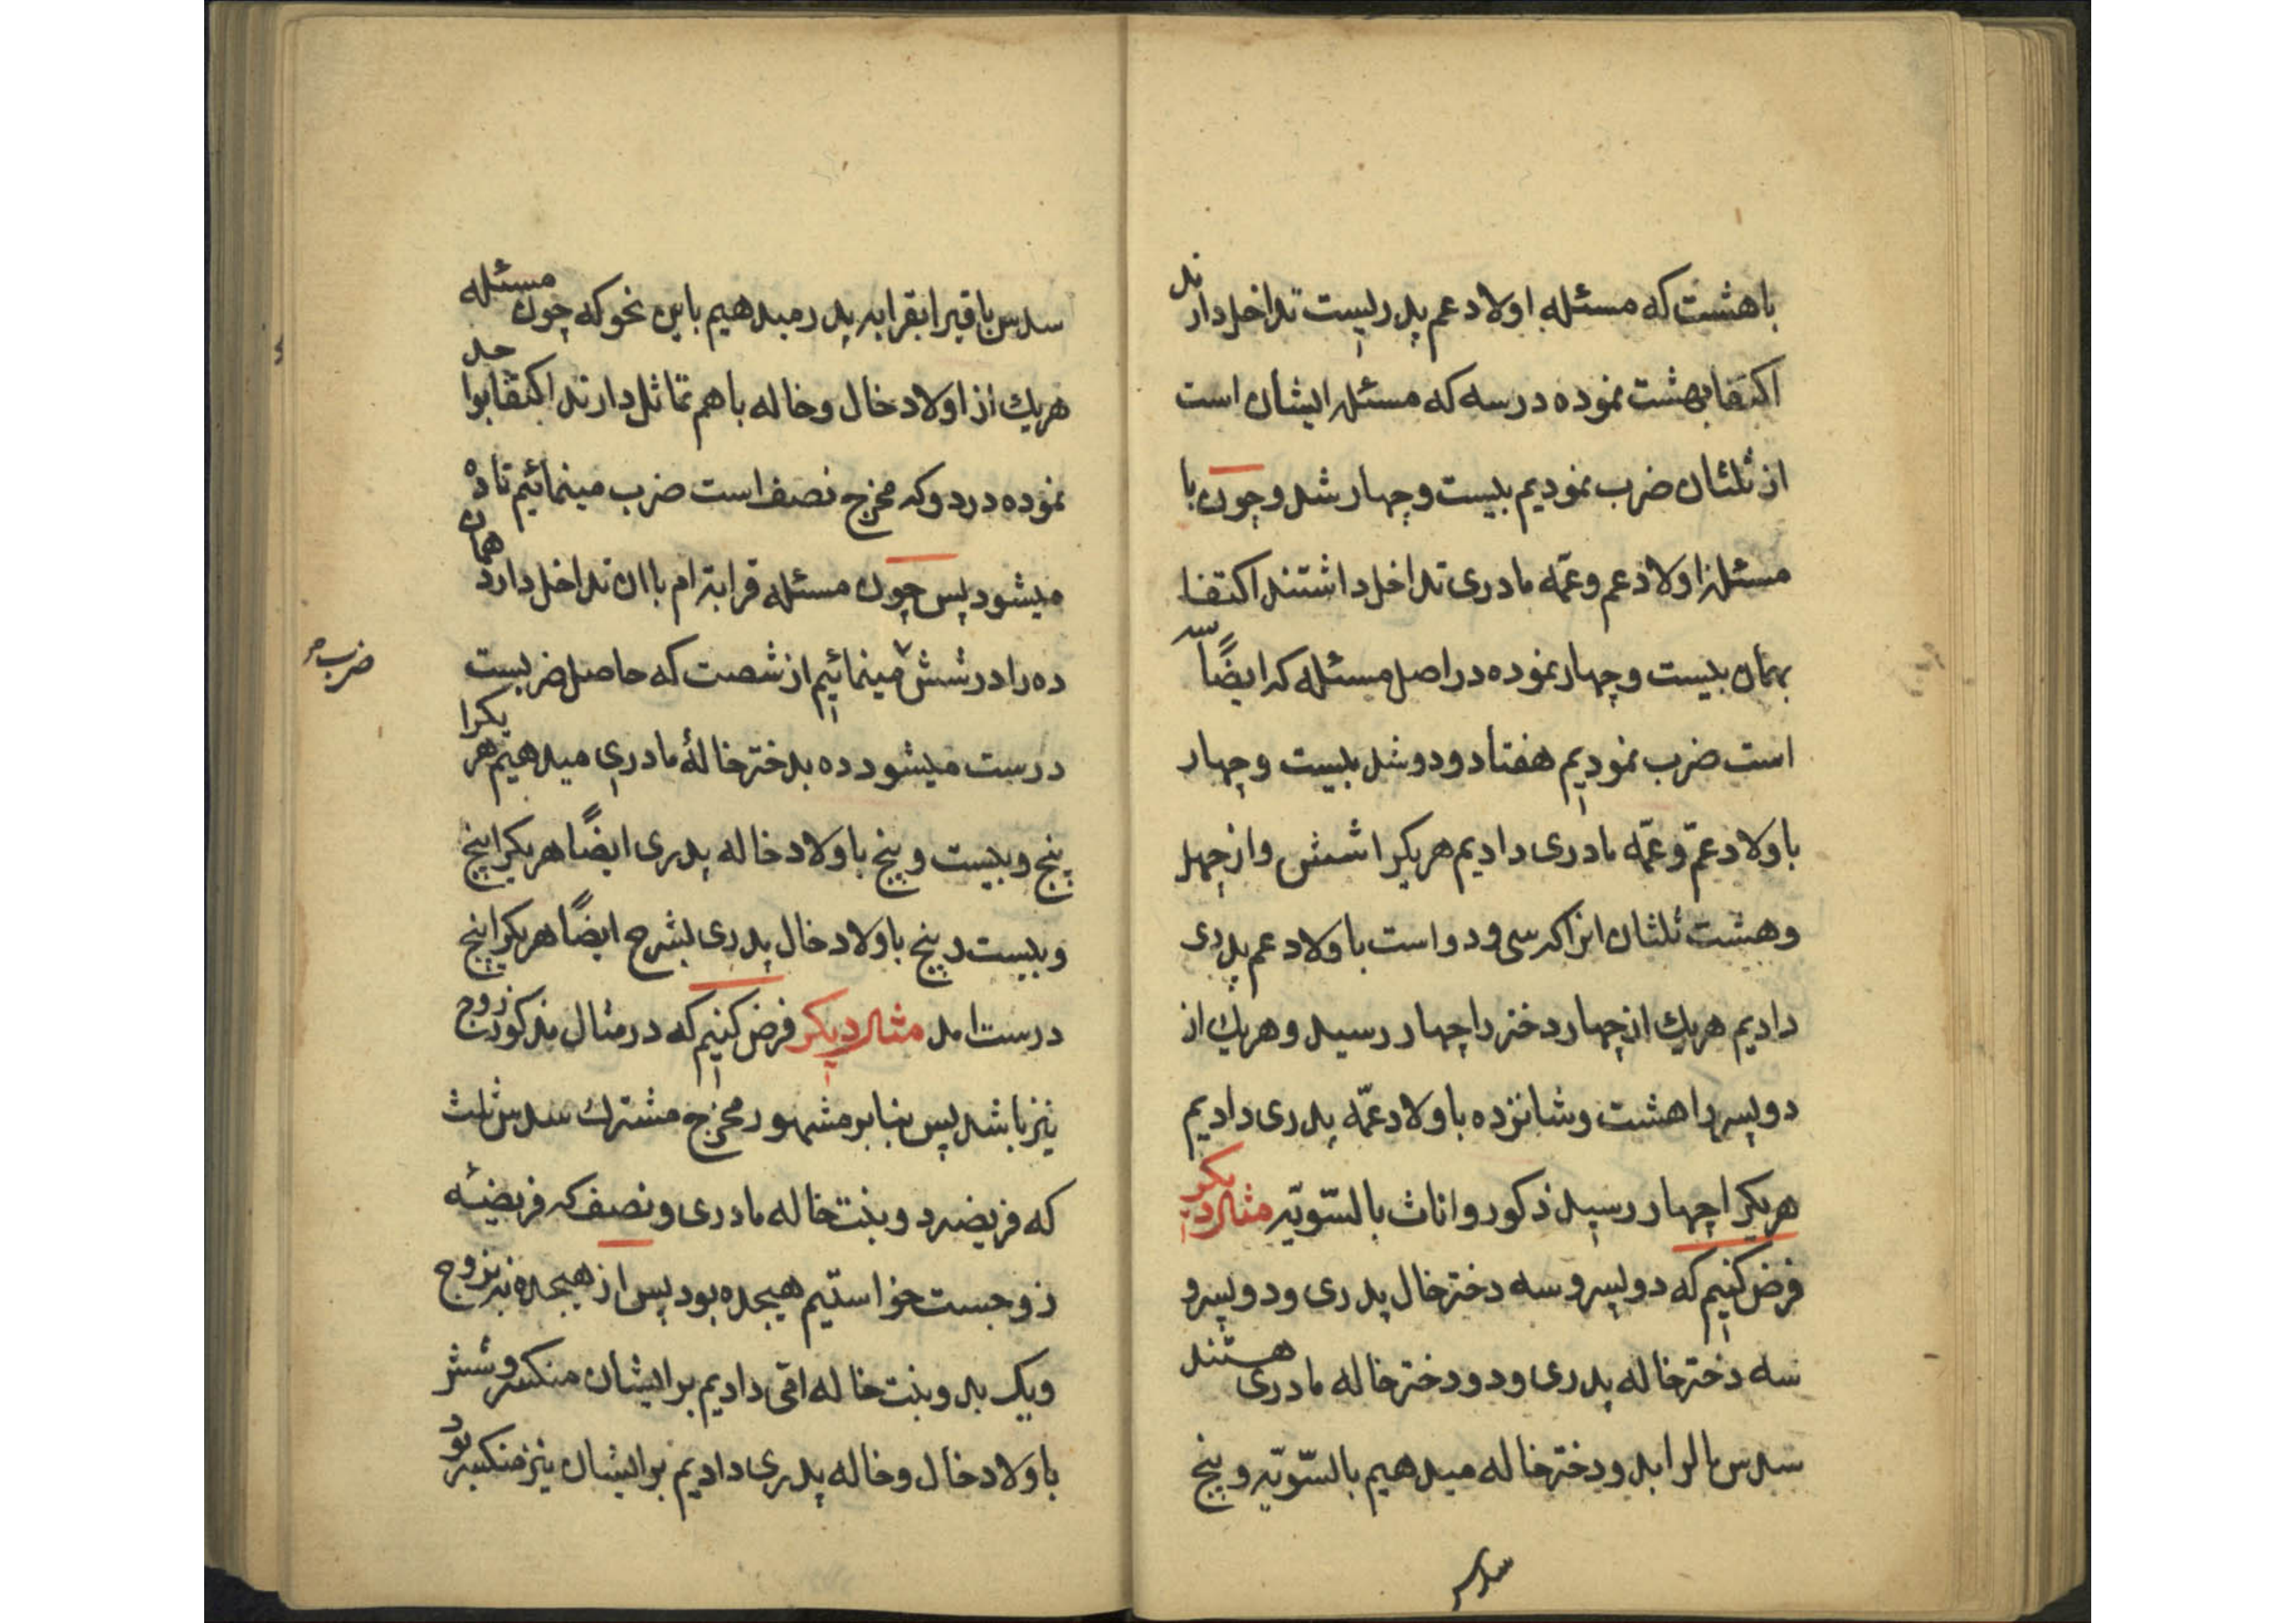 باهشت که مسئله اولاد عم پدریست تداخل دارند
اکتفا بهشت نموده در سه که مسئله ایشان است
از ثلثان ضرب نمودیم بیست و چهار شد و چون با
مسئله اولاد عم و عمّه مادری تداخل داشتند اکتفا
بهمان بیست و چهار نموده در اصل مسئله که ایضاً سه
است ضرب نمودیم هفتاد و دو شد بیست و چهار
باولاد عمّ و عمّه مادری دادیم هریکرا شش و از چهل
و هشت ثلثان انرا که سی و دو است باولاد عم پدری
دادیم هریك از چهار دختر را چهار رسید و هریك از
دو پسر را هشت و شانزده باولاد عمّه پدری دادیم
هریکرا چهار رسید ذکور و اناث بالسّویّه مثال دیکر
فرض کنیم که دو پسر و سه دختر خال پدری و دو پسر و
سه دختر خاله پدری و دو دختر خاله مادری هستند
سدس مال را بدو دختر خاله میدهیم بالسّویّه و پنج
سدس
سدس باقیرا بقرابه پدر میدهیم باین نحو که چون مسئله
هریك از اولاد خال و خاله باهم تماثل دارند اکتفا بواحد
نموده در دو که مخرج نصف است ضرب مینمائیم تا ده
میشود پس چون مسئله قرابه ام با ان تداخل دارد همان
ده را در شش مینمائیم از شصت که حاصل ضربست
ضرب
درست میشود ده بدختر خالهٔ مادری میدهیم هریکرا
پنج و بیست و پنج باولاد خاله پدری ایضاً هریکرا پنج
و بیست و پنج باولاد خال پدری بشرح ایضاً هریکرا پنج
درست امد مثال دیکر فرض کنیم که در مثال مذکور زوج
نیز باشد پس بنابر مشهور مخرج مشترك سدس ثلث
که فریضه دو بنت خاله مادری و نصف که فریضه
زوجست خواستیم هیجده بود پس از هیجده نه بزوج
ویک بدو بنت خاله امّی دادیم بر ایشان منکسر و شش
باولاد خال و خاله پدری دادیم بر ایشان نیز منکسر بود